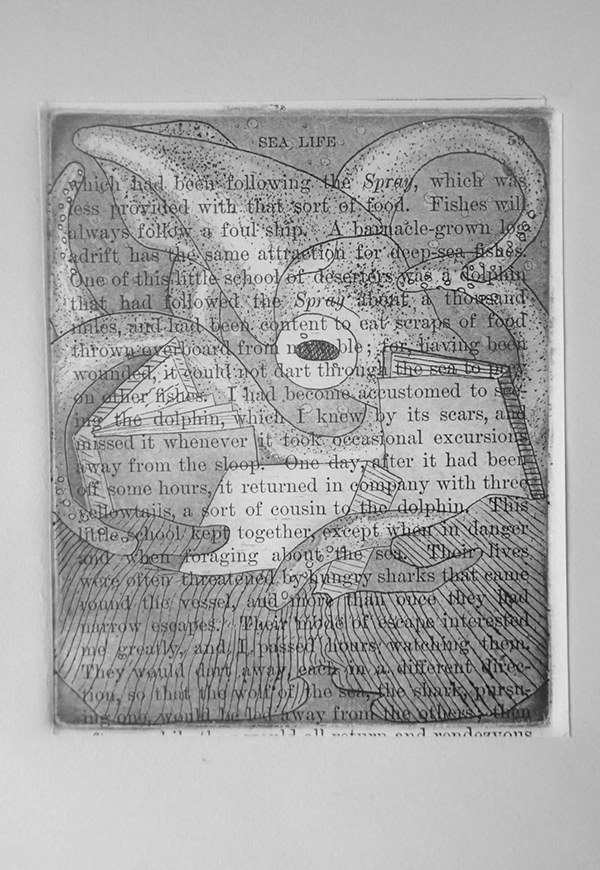 SEA LIFE 59
which had been following the Spray, which was
less provided with that sort of food. Fishes will
always follow a foul ship. A barnacle-grown log
adrift has the same attraction for deep-sea fishes.
One of this little school of deserters was a dolphin
that had followed the Spray about a thousand
miles, and had been content to eat scraps of food
thrown overboard from my table; for, having been
wounded, it could not dart through the sea to prey
on other fishes. I had become accustomed to see-
ing the dolphin, which I knew by its scars, and
missed it whenever it took occasional excursions
away from the sloop. One day, after it had been
off some hours, it returned in company with three
yellowtails, a sort of cousin to the dolphin. This
little school kept together, except when in danger
and when foraging about the sea. Their lives
were often threatened by hungry sharks that came
round the vessel, and more than once they had
narrow escapes. Their mode of escape interested
me greatly, and I passed hours watching them.
They would dart away, each in a different direc-
tion, so that the wolf of the sea, the shark, pursu-
ing one, would be led away from the others; then
after a while they would all return and rendezvous